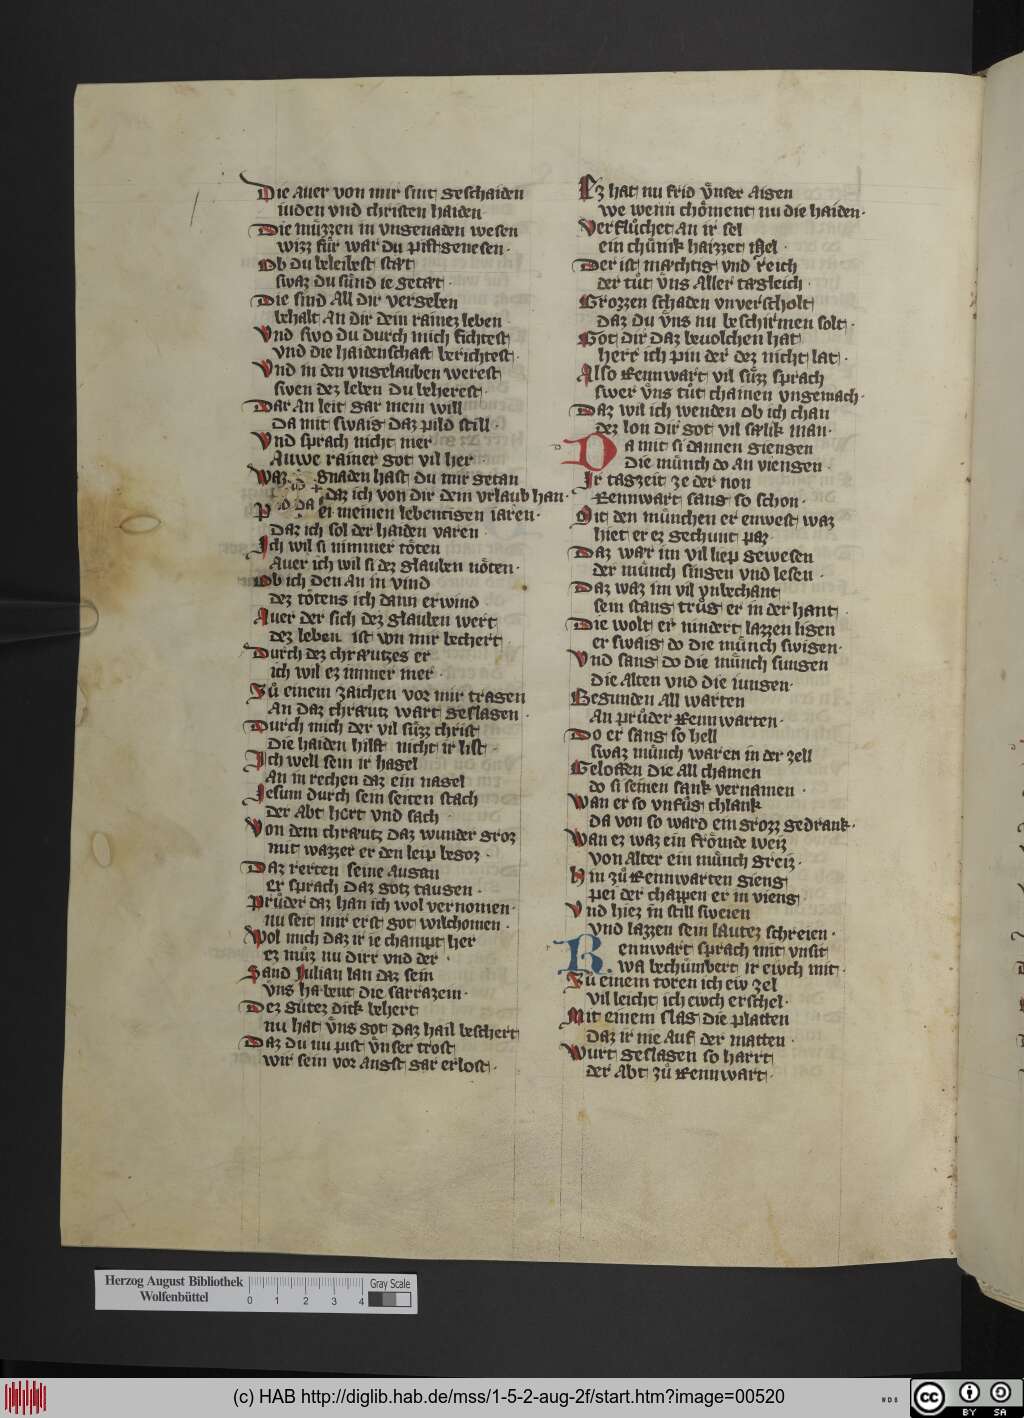 Die auer von mir sint geschaiden
iuden vnd christen haiden
Die müzzen in vngenaden wesen
wizz für war du pist genesen
Ob du beleibest stæt
swaz du sünd ie getæt
Die sind all dir vergeben
behalt an dir dein rainez leben
Vnd swo du durch mich fichtest
vnd die haidenschaft berichtest
Vnd in den vngelauben werest
swen dez leben du beherest
Dar an leit gar mein will
da mit swaig daz pild still
Vnd sprach nicht mer
Auwe rainer got vil her
Waz gnaden hast du mir getan
daz ich von dir dein vrlaub han
ei meinen lebentigen iaren
daz ich sol der haiden varen
Ich wil si nimmer töten
auer ich wil si dez glauben nöten
Ob ich den an in vind
dez tötens ich dann erwind
Auer der sich dez glauben wert
dez leben ist von mir bechert
Durch dez chræutzes er
ich wil ez immer mer
Zů einem zaichen vor mir tragen
an daz chræutz wart geslagen
Durch mich der vil süzz christ
die haiden hilft nicht ir list
Ich well sein ir hagel
an in rechen daz ein nagel
Jesum durch sein seiten stach
der abt hört vnd sach
Von dem chræutz daz wunder groz
mit wazzer er den leip begoz
Daz rerten seine augan
er sprach daz gotz taugen
Průder daz han ich wol vernomen
nu seit mir erst got wilchomen
Wol mich daz ir ie champt her
ez můz nu dirr vnd der
Sand Julian lan daz sein
vns habent die sarrazein
Dez gůtez dick behert
nu hat v̊ns got daz hail beschert
Daz du nu pist v̊nser trost
wir sein vor angst gar erlost
Ez hat nu frid v̊nser aigen
we wenn chöment nu die haiden
Verflůchet an ir sel
ein chünik haizzet isel
Der ist mæchtig vnd reich
der tůt v̊ns aller tægleich
Grozzen schaden vnverscholt
daz du v̊ns nu beschirmen solt
Got dir daz beuolchen hat
herr ich pin der dez nicht lat
Also Rennwart vil süzz sprach
swer v̊ns tůt chainen vngemach
Daz wil ich wenden ob ich chan
dez lon dir got vil sælik man
Da mit si dannen giengen
die münch do an viengen
Ir tagzeit ze der non
Rennwart sang so schon
Mit den münchen er enwest waz
hiet er ez gechunt paz
Daz wær im vil liep gewesen
der münch singen vnd lesen
Daz waz im vil vnbechant
sein stang trůg er in der hant
Die wolt er nindert lazzen ligen
er swaig do die münch swigen
Vnd sang do die münch sungen
die alten vnd die iungen
Begunden all warten
an průder Rennwarten
Do er sang so hell
swaz münch waren in der zell
Geloffen die all chamen
do si seinen sank vernamen
Wan er so vnfůg chlank
da von so ward ein grozz gedrank
Wan ez waz ein frömde weiz
von alter ein münch greiz
Hin zů Rennwarten gieng
pei der chappen er in vieng
Vnd hiez in still sweien
vnd lazzen sein lautez schreien
Rennwart sprach mit vnsit
wa bechümbert ir ewch mit
Zů einem toren ich ew zel
vil leicht ich ewch erschel
Mit einem slag die platten
daz ir nie auf der matten
Wurt geslagen so harrt
der abt zů Rennwart
Herzog August Bibliothek
Wolfenbüttel
0 1 2 3 4
Gray Scale
(c) HAB http://diglib.hab.de/mss/1-5-2-aug-2f/start.htm?image=00520
WDB
cc
BY SA